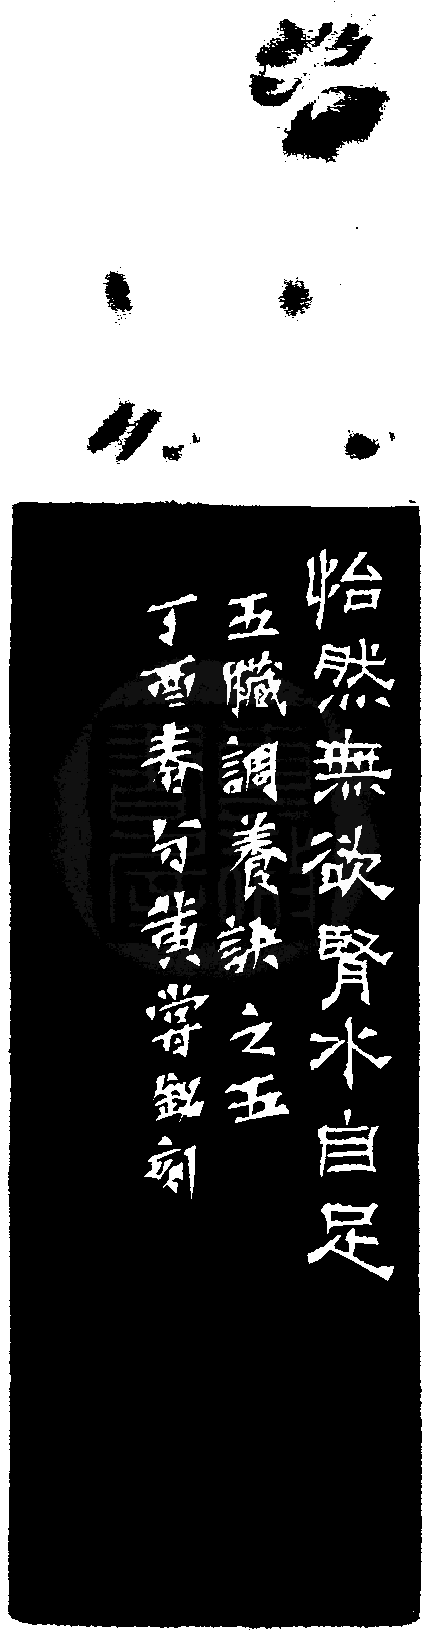 怡然無欲腎水自足
五臟調養訣之五
丁酉春分黃嘗鉛刻